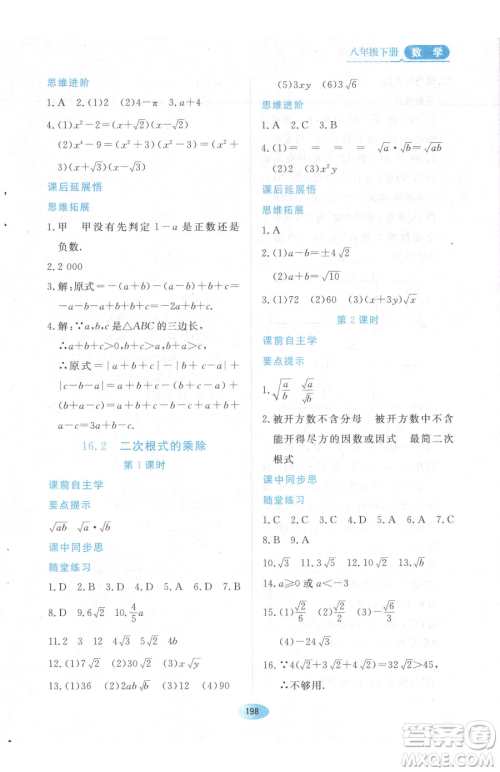 八年级下册 数学
思维进阶
1. A 2. (1)2 (2)4-π 3. a+4
4. (1)x²-2=(x+√2)(x-√2)
(2)x⁴-9=(x²+3)(x²-3)=(x²+
3)(x+√3)(x-√3)
课后延展悟
思维拓展
1. 甲 甲没有先判定1-a是正数还是
负数.
2. 2 000
3. 解:原式=-(a+b)-(-a)+(b-
a)+(a+b)=b.
4. 解:∵a,b,c是△ABC的三边长,
∴a+b+c>0,b+c>a,c+a>b,a+b>c.
∴原式=|a+b+c|-|b+c-a|+
|c-b-a|=a+b+c-(b+c-
a)+(b+a-c)=a+b+c-b-c+a+
b+a-c=3a+b-c.
16.2 二次根式的乘除
第1课时
课前自主学
要点提示
√ab √a·√b
课中同步思
随堂练习
1. D 2. B 3. A 4. C 5. D 6. B 7. D
8. D 9. 6√2 10. 4/5 a
11. 2 4 √a √b
12. (1)√15 (2)6 (3)x√y
13. (1)36 (2)2ab√b (3)12 (4)90
(5)3xy (6)3√6
思维进阶
1. A 2. C 3. B
4. (1)= = = = √a·√b
(2)(1)√6 (3)x²y
课后延展悟
思维拓展
1. A
2. (1)a-b=±4√2
(2)a+b=√10
3. (1)72 (2)60 (3)(x+y)√x
第2课时
课前自主学
要点提示
1. √(a/b) √a/√b
2. 被开方数不含分母 被开方数中不含
能开得尽方的因数或因式 最简二次
根式
课中同步思
随堂练习
1. C 2. D 3. A 4. D 5. A 6. C 7. A
8. B 9. C 10. D
11. √3 12. 3√5 13. √2
14. a≥0或a<-3
15. (1)√6/2 (2)√2/2 (3)-√6/3
(4)-√3
16. ∵4(√2+√3+√2)>45,
∴不够用.
198